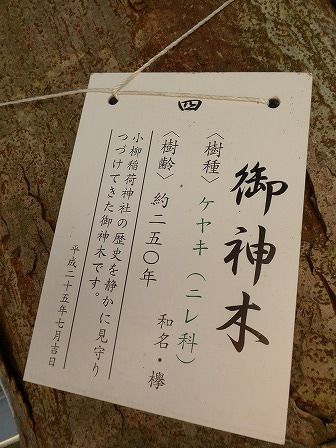 四
御神木
〈樹種〉ケヤキ（ニレ科）
和名・欅
〈樹齢〉約二五〇年
小柳稲荷神社の歴史を静かに見守り
つづけてきた御神木です。
平成二十五年七月吉日